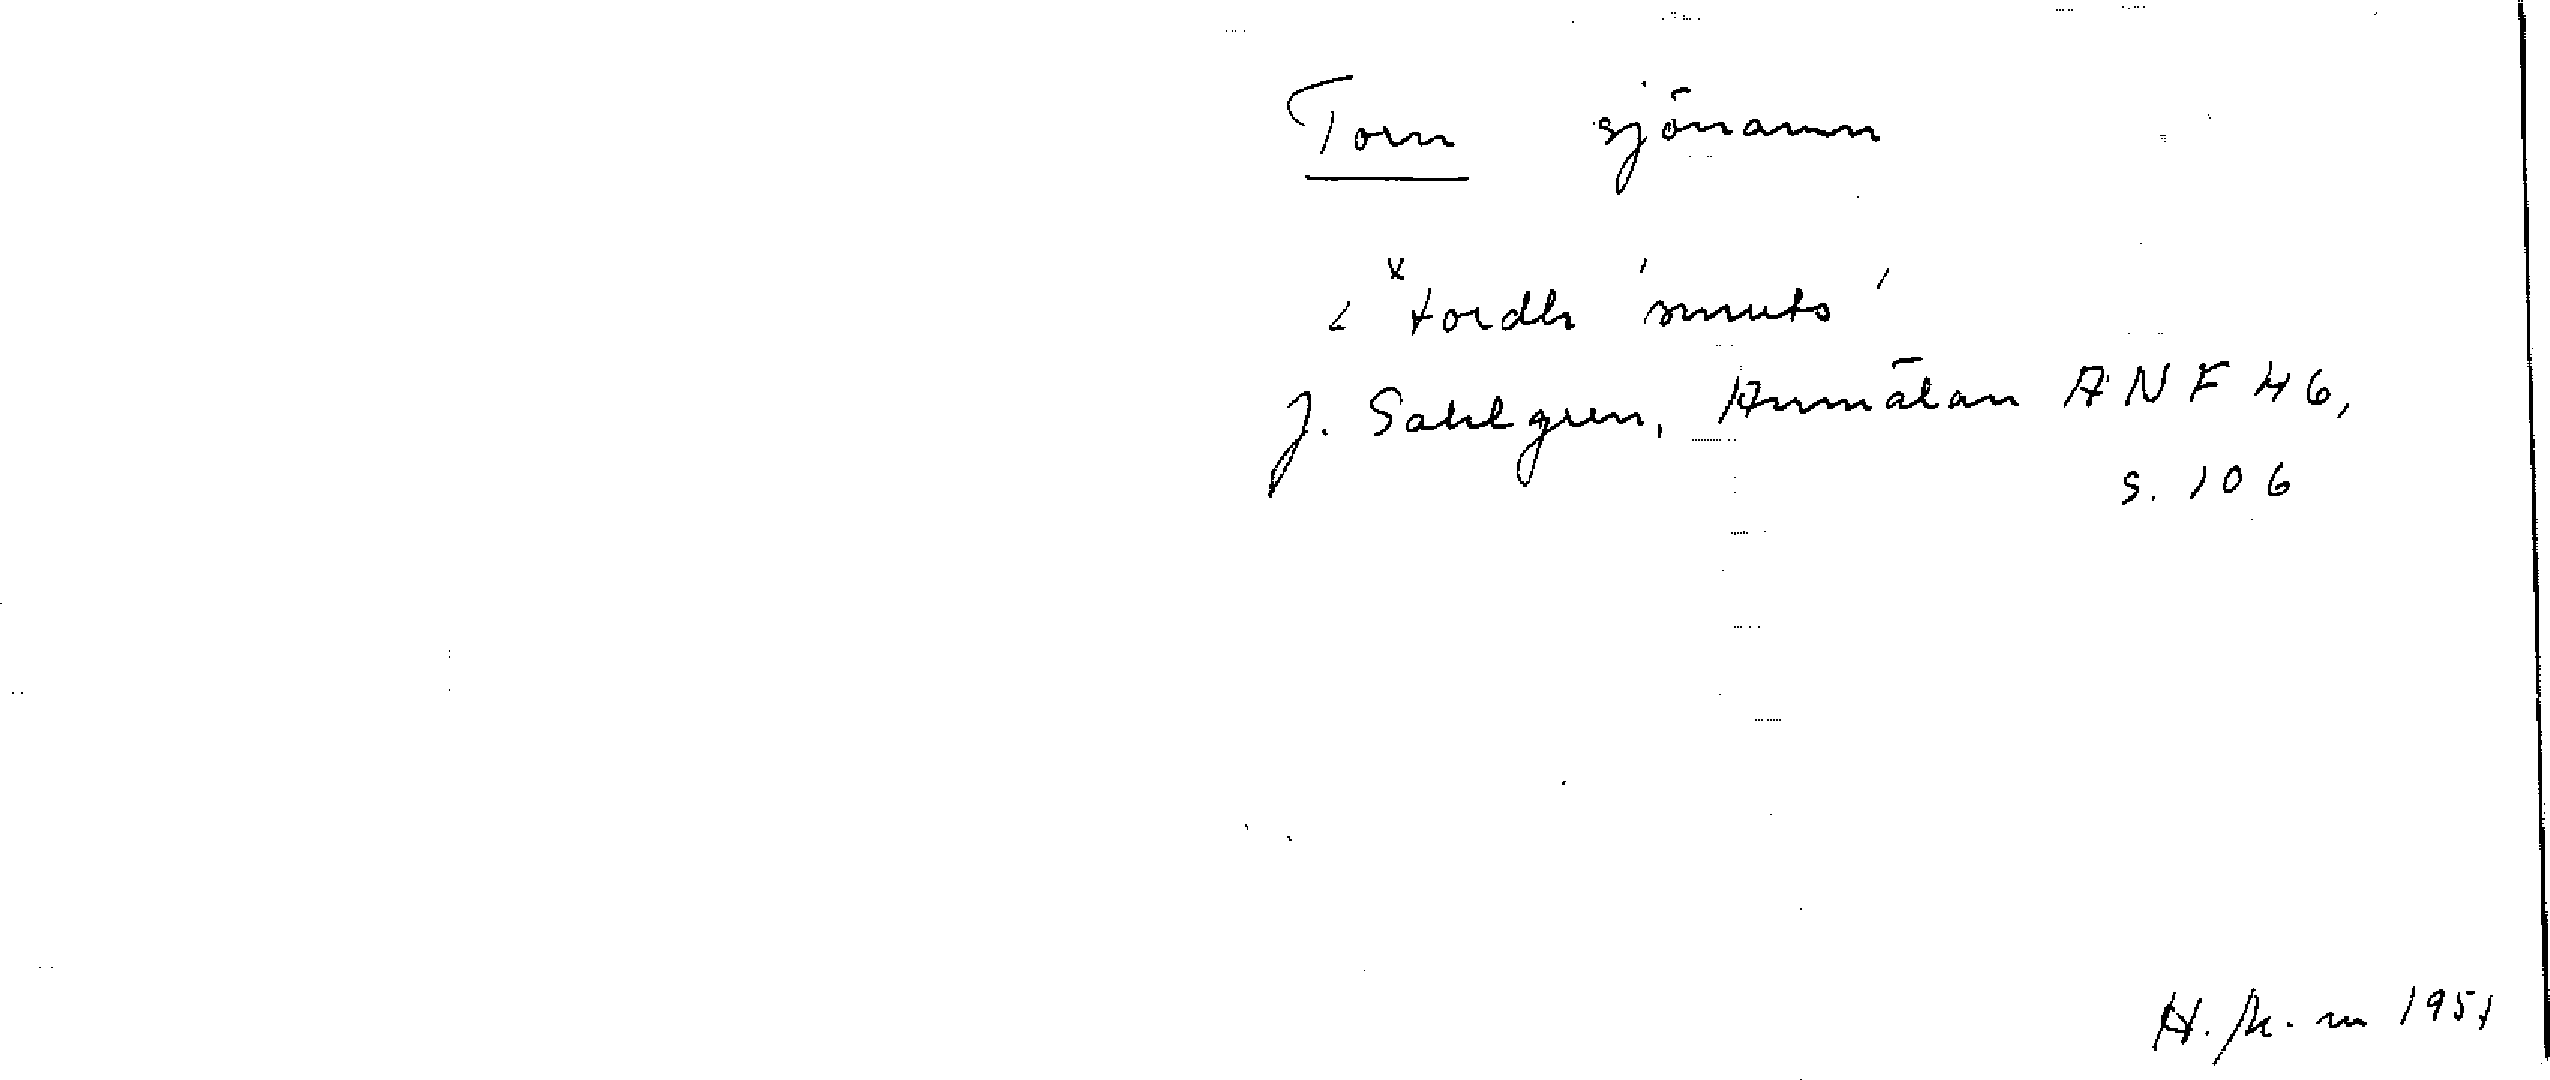 Torn sjönamn
< *tordh 'smuts'
J. Sahlgren, Anmälan ANF 46,
s. 106
1951